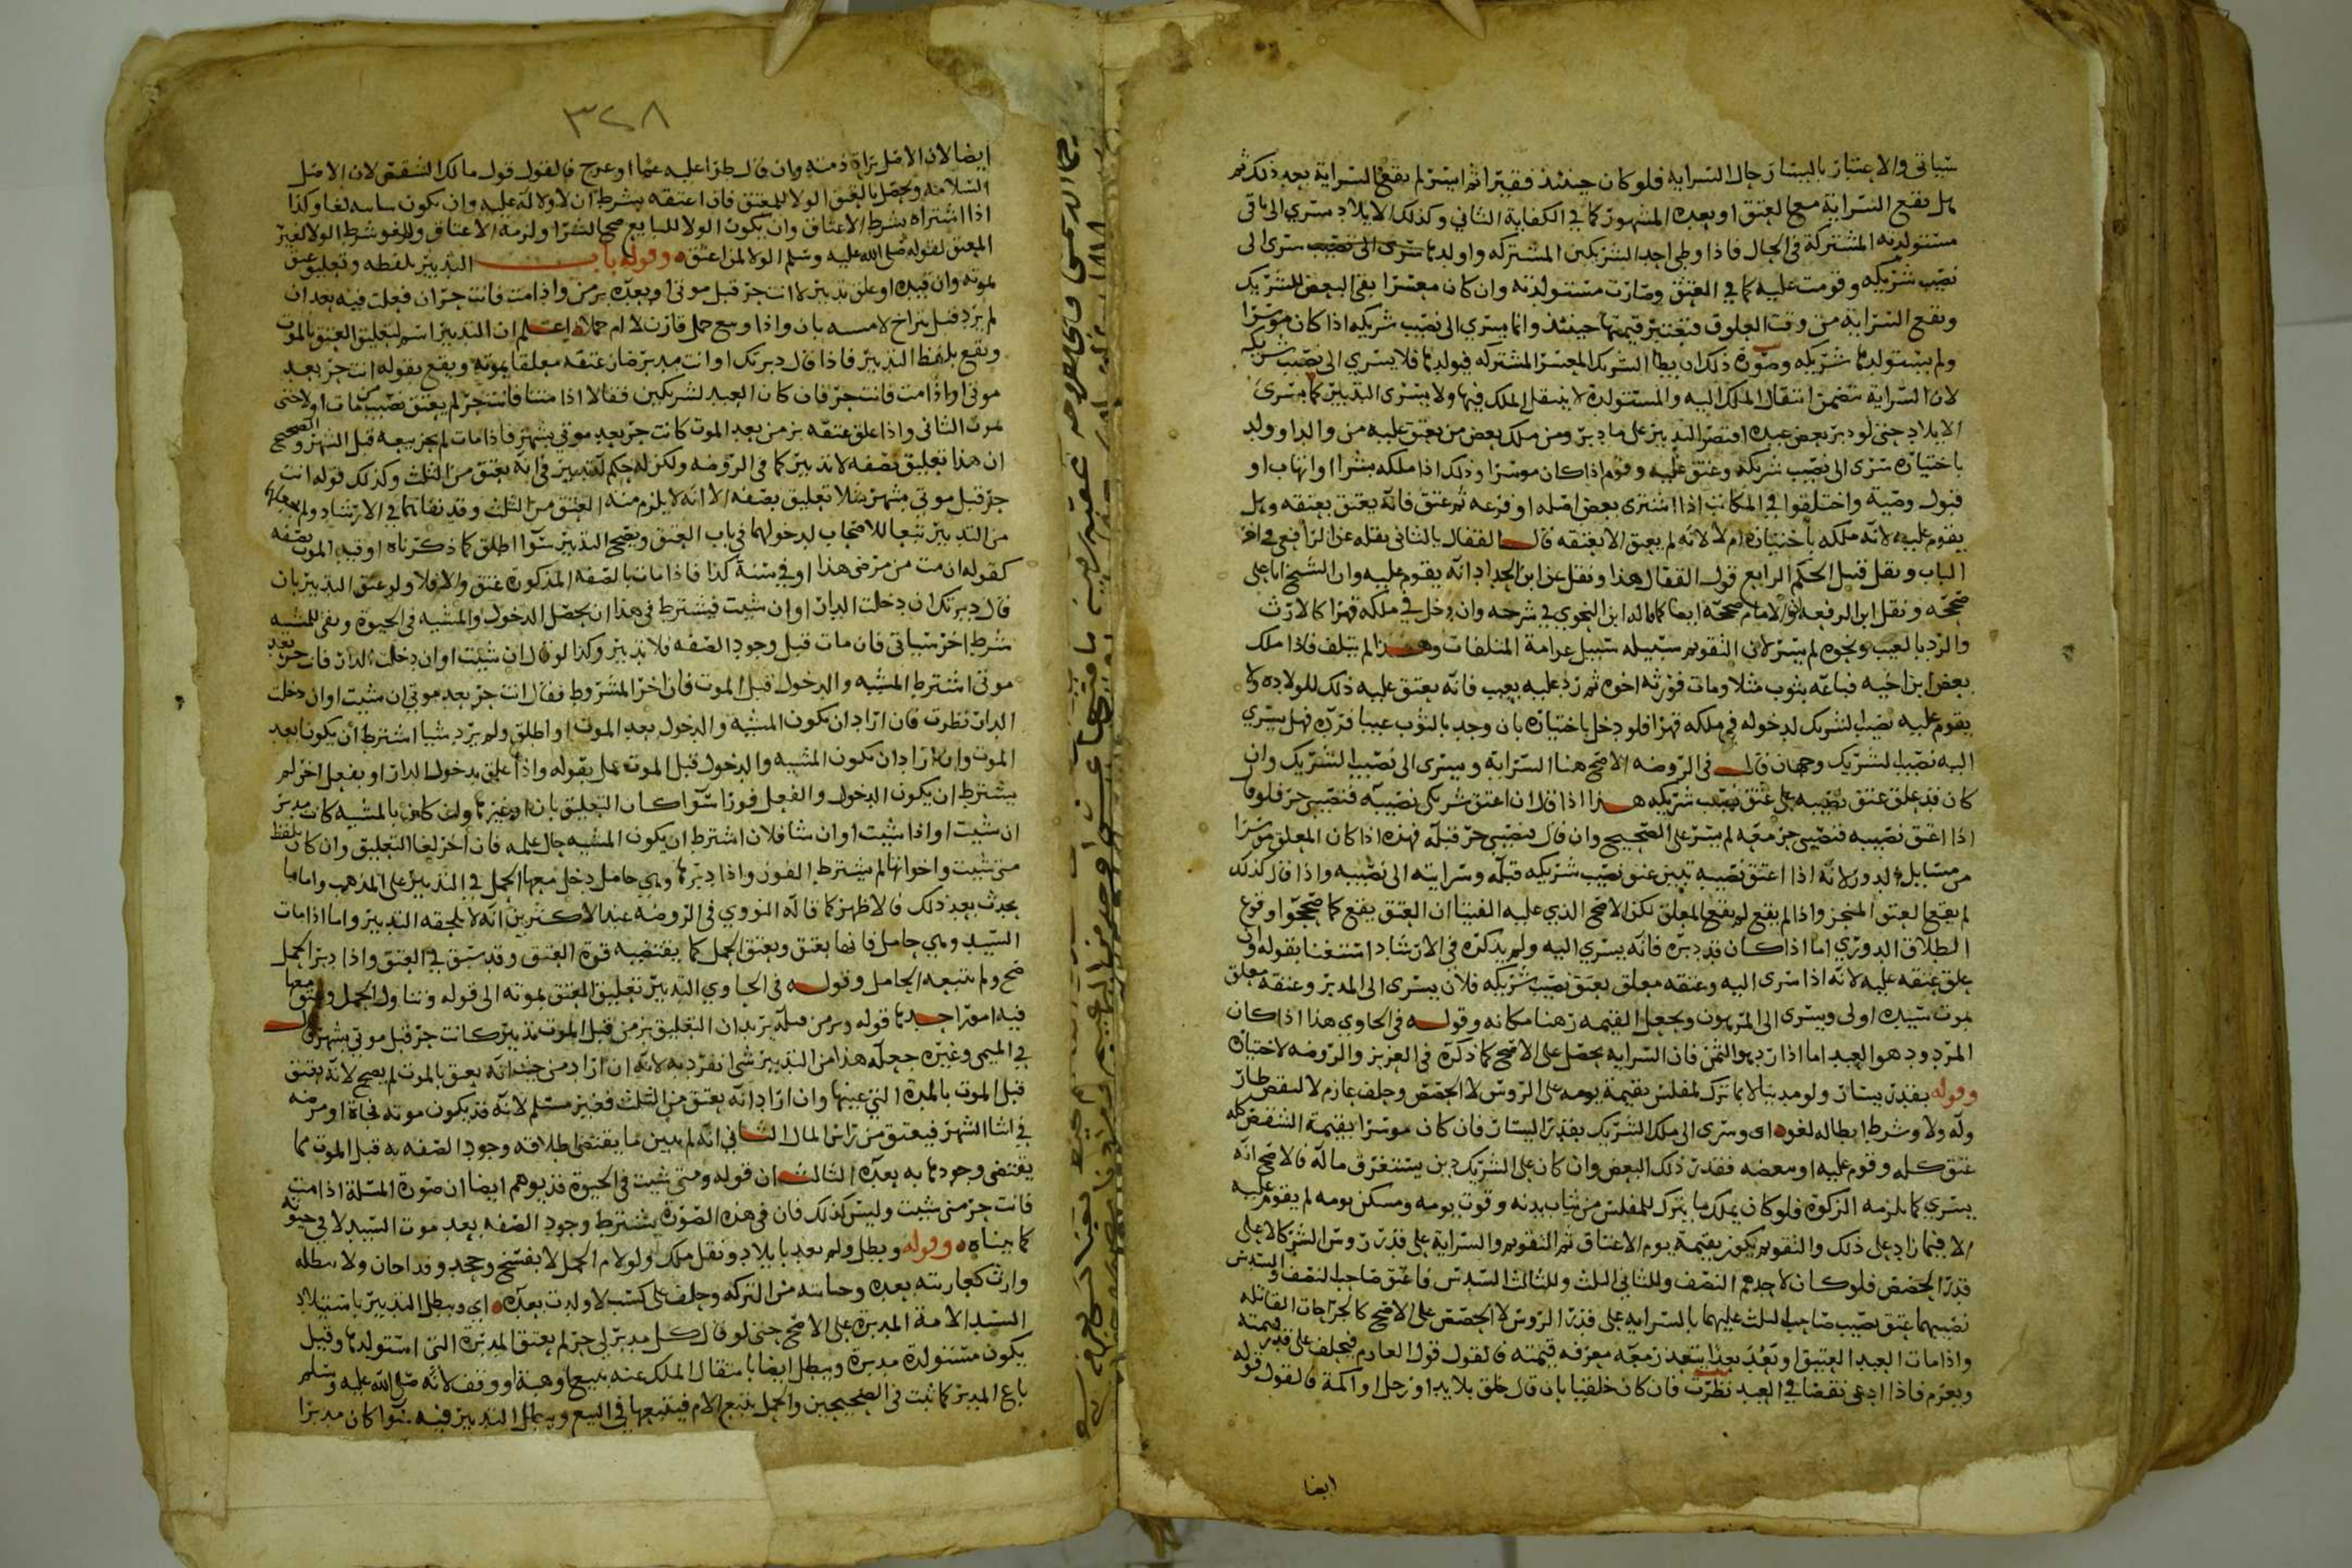 سياتي والاعتبار باليسار حال السراية فلو كان حينئذ فقيرا ثم ايسر لم تقع السراية بعد ذلك ثم
هل تقع السراية مع العتق او بعده المشهور كما في الكفاية الثاني وكذلك الايلاد يسري الى باقي
مستولدته المشتركة في الحال فاذا وطي احد الشريكين المشتركه واولدها سرى الى
نصيب شريكه وقومت عليه كما في العتق وصارت مستولدته وان كان معسرا بقي البعض للشريك
وتقع السراية من وقت العلوق فتعتبر قيمتها حينئذ وانما يسري الى نصيب شريكه اذا كان موسرا
ولم يستولدها شريكه وصورة ذلك ان يطا الشريك المعسر المشتركه فيولدها فلا يسري الى نصيب شريكه
لان السراية تتضمن انتقال الملك اليه والمستولدة لا ينتقل الملك فيها ولا يسرى التدبير كما يسرى
الايلاد حتى لو دبر بعض عبده اقتصر التدبير على ما دبر ومن ملك بعض من يعتق عليه من والد او ولد
باختياره سرى الى نصيب شريكه وعتق عليه وقوم اذا كان موسرا وذلك اذا ملكه بشرا او اتهاب او
قبول وصية واختلفوا في المكاتب اذا اشترى بعض اصله او فرعه ثم عتق فانه يعتق بعتقه وهل
يقوم عليه لانه ملكه باختياره ام لا لانه لم يعتق الا بعتقه قال القفال بالثاني نقله عن الرافعي في اخر
الباب ونقل قبيل الحكم الرابع قول القفال هذا ونقل عن ابن الحداد انه يقوم عليه وان الشيخ ابا علي
صححه ونقل ابن الرفعه ان الامام صححه ايضا كما قاله ابن النحوي في شرحه وان دخل في ملكه قهرا كالارث
والرد بالعيب ونحوه لم يسر لان التقويم سبيله سبيل غرامة المتلفات وهذا لم يتلف فاذا ملك
بعض ابن اخيه فباعه بثوب مثلا ومات فورثه اخوه ثم رد عليه بعيب فانه يعتق عليه ذلك للولاده ولا
يقوم عليه نصيب الشريك لدخوله في ملكه قهرا فلو دخل باختياره بان وجد بالثوب عيبا فرده فهل يسري
اليه نصيب الشريك وجهان قال في الروضه الاصح هنا السراية ويسرى الى نصيب الشريك وان
كان قد علق عتق نصيبه على عتق نصيب شريكه هذا اذا قال ان اعتق شريكي نصيبه فنصيبي حر فلو قال
اذا اعتق نصيبه فنصيبي حر معه لم يسر على الصحيح وان قال فنصيبي حر قبله فهذه اذا كان المعلق موسرا
من مسايل الدور لانه اذا اعتق نصيبه تبين عتق نصيب شريكه قبله وسرايته الى نصيبه واذا قال كذلك
لم يقع العتق المنجز واذا لم يقع لم يقع المعلق لكن الاصح الذي عليه الفتيا ان العتق يقع كما صححوا وقوع
الطلاق الدوري اما اذا كان قد دبره فانه يسري اليه ولم يذكره في الارشاد استغنا بقوله وان
علق عتقه عليه لانه اذا سرى اليه وعتقه معلق بعتق نصيب شريكه فلان يسرى الى المدبر وعتقه معلق
بموت سيده اولى ويسرى الى المرهون وتجعل القيمه رهنا مكانه وقوله في الحاوي هذا اذا كان
المردود هو العبد اما اذا رد هو الثمن فان السراية تحصل على الاصح كما ذكره في العزيز والروضه لاختياره
وقوله بقدر يسار ولو مدينا لا بما ترك لمفلس بقيمة يومه على الروس لا الحصص وحلف غارم لا لنقص طار
وله ولا وشرط ابطاله لغو اى وسرى الى ملك الشريك بقدر اليسار فان كان موسرا بقيمة الشقص كله
عتق كله وقوم عليه او ببعضه فقدر ذلك البعض وان كان على الشريك دين يستغرق ماله فالاصح انه
يسري كما يلزمه الزكوة فلو كان يملك ما يترك للمفلس من ثياب بدنه وقوت يومه ومسكن يومه لم يقوم عليه
الا فيما زاد على ذلك والتقويم يكون بقيمة يوم الاعتاق ثم التقويم والسراية على قدر روس الشركا لا على
قدر الحصص فلو كان لاحدهم النصف وللثاني الثلث وللثالث السدس فاعتق صاحب النصف والسدس
نصيبهما عتق نصيب صاحب الثلث عليهما بالسرايه على قدر الروس لا الحصص على الاصح كالجراحات القاتله
واذا مات العبد العتيق او بعد بعدا يتعذر معه معرفه قيمته فالقول قول الغارم فيحلف على قدر قيمته
ويغرم فاذا ادعى نقصا في العبد نظرت فان كان خلقيا بان قال خلق بلا يد او رجل او اكمه فالقول قوله
ايضا
٣٢٨
ايضا لان الاصل براة ذمته وان قال طرا عليه عما او عرج فالقول قول مالك الشقص لان الاصل
السلامه ويحصل بالعتق الولا للمعتق فان اعتقه بشرط ان لا ولا له عليه وان يكون سايبه لغا وكذا
اذا اشتراه بشرط الاعتاق وان يكون الولا للبايع صح الشرا ولزمه الاعتاق ولغو شرط الولا لغير
المعتق لقوله صلى الله عليه وسلم الولا لمن اعتق وقوله باب التدبير بلفظه وتعليق عتق
بموته وان قيده او علق تدبير لا انت حر قبل موتي او بعده بزمن واذا مت فانت حر ان فعلت فيه بعد ان
لم يرد قبل بتراخ لا مسه بان واذا وسع حمل قارن لا ام حملا اعلم ان التدبير اسم لتعليق العتق بالموت
ويقع بلفظ التدبير فاذا قال دبرتك او انت مدبر صار عتقه معلقا بموته ويقع بقوله انت حر بعد
موتي او اذا مت فانت حر فان كان العبد لشريكين فقالا اذا متنا فانت حر لم يعتق نصيب من مات اولا حتى
يموت الثاني واذا علق عتقه بزمن بعد الموت كانت حر بعد موتي بشهر فاذا مات لم يجز بيعه قبل الشهر والصحيح
ان هذا تعليق بصفه لا تدبير كما في الروضه ولكن له حكم التدبير في انه يعتق من الثلث وكذلك قوله انت
حر قبل موتي بشهر مثلا تعليق بصفه الا انه لا يلزم منه العتق من الثلث وقد نفاهما في الارشاد ولم يجعلهما
من التدبير تبعا للاصحاب لدخولهما في باب العتق ويصح التدبير سوا اطلق كما ذكرناه او قيد الموت بصفه
كقوله ان مت من مرضي هذا او في سنة كذا فاذا مات بالصفه المذكورة عتق والا فلا ولو علق التدبير بان
قال دبرتك ان دخلت الدار او ان شيت فيشترط في هذا ان يحصل الدخول والمشيه في الحيوة وبقي للمشيه
شرط اخر سياتي فان مات قبل وجود الصفه فلا تدبير وكذا لو قال ان شيت او ان دخلت الدار فانت حر بعد
موتي اشترط المشيه والدخول قبل الموت فان اخر المشروط فقال انت حر بعد موتي ان شيت او ان دخلت
الدار نظرت فان اراد ان تكون المشيه والدخول بعد الموت او اطلق ولم يرد شيا اشترط ان يكونا بعد
الموت وان اراد ان تكون المشيه والدخول قبل الموت عمل بقوله واذا علق بدخول الدار او بفعل اخر لم
يشترط ان يكون الدخول والفعل فورا سوا كان التعليق بان او غيرها ولو كان بالمشيه كانت مدبر
ان شيت او اذا شيت او ان شا فلان اشترط ان يكون المشيه حال علمه فان اخر لغا التعليق وان كان بلفظ
متى شيت واخواتها لم يشترط الفور واذا دبرها وهي حامل دخل معها الحمل في التدبير على المذهب واما ما
يحدث بعد ذلك فالاظهر كما قاله النووي في الروضه عند الاكثرين انه لا يلحقه التدبير واما اذا مات
السيد وهي حامل فانها تعتق ويعتق الحمل كما يقتضيه قوة العتق وقد سبق في العتق واذا دبر الحمل
صح ولم يتبعه الحامل وقوله في الحاوي التدبير تعليق العتق بموته الى قوله وتناول الحمل وعتق معها
فيه امور احدها قوله وبزمن قبله يريد ان التعليق بزمن قبل الموت تدبير كانت حر قبل موتي بشهر قال
في الميمي وغيره جعله هذا من التدبير شي انفرد به لانه ان اراد من حيث انه يعتق بالموت لم يصح لانه يعتق
قبل الموت بالمدة التي عينها وان اراد انه يعتق من الثلث فغير مسلم لانه قد يكون موته فجاة او مرضه
في اثنا الشهر فيعتق من راس المال الثاني انه لم يبين ما يقتضي اطلاقه وجود الصفه به قبل الموت مما
يقتضي وجودها به بعده الثالث ان قوله ومتى شيت في الحيوة قد يوهم ايضا ان صورة المسلة اذا مت
فانت حر متى شيت وليس كذلك فان في هذه الصورة يشترط وجود الصفه بعد موت السيد لا في حيوته
كما بيناه وقوله ويطل ولم يعد بايلاد ونقل ملك ولولا م الحمل لا بفسخ وجحد ورد احان ولا يبطله
وارث كعاريته بعده وحاسه من التركه وحلف على كسب لا ولدت بعده اي ويبطل التدبير باستيلاد
السيد الامة المدبرة على الاصح حتى لو قال كل مدبر لي حر لم يعتق المدبرة التي استولدها وقيل
يكون مستولدة مدبرة ويبطل ايضا بانتقال الملك عنه ببيع او هبة او وقف لانه صلى الله عليه وسلم
باع المدبر كما ثبت في الصحيحين والحمل يتبع الام فيتبعها في البيع ويبطل التدبير فيه سوا كان مدبرا